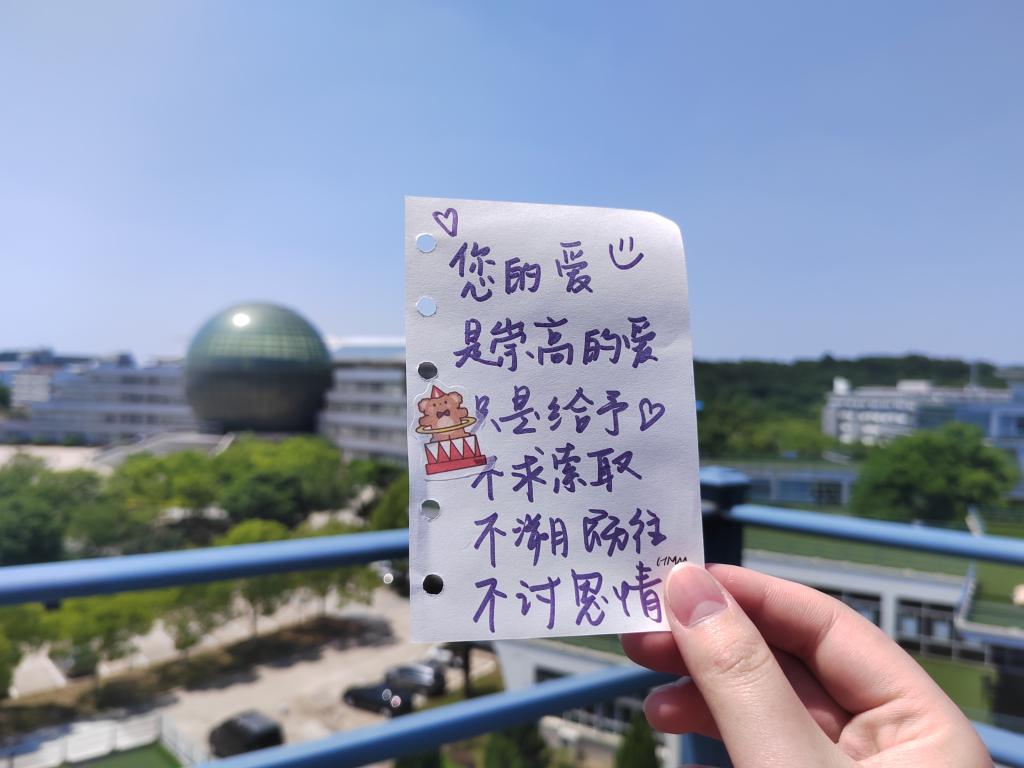 您的爱
是崇高的爱
只是给予
不求索取
不溯既往
不讨恩情
HMM